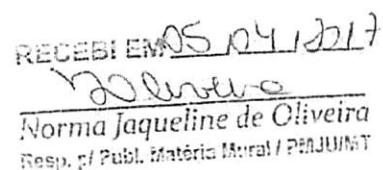 RECEBI EM 05/04/2017
JOliveira
Norma Jaqueline de Oliveira
Resp. p/ Publ. Matéria Mural / PMJU/MT